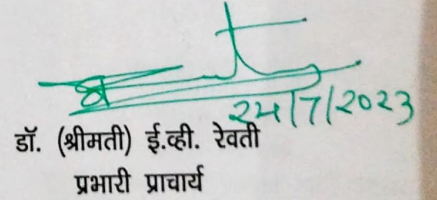 24/7/2023
डॉ. (श्रीमती) ई.व्ही. रेवती
प्रभारी प्राचार्य